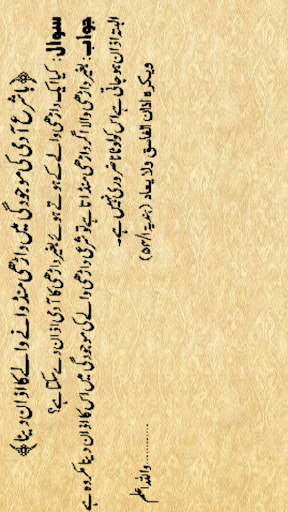 ﴿باشرع آدمی کی موجودگی میں داڑھی منڈوانے والے کا اذان دینا﴾
سوال: کیا ایک داڑھی والے کے ہوتے ہوئے بغیر داڑھی کا آدمی اذان دے سکتا ہے؟
جواب: بغیر داڑھی والا اگر داڑھی منڈاتا ہے تو شرعی داڑھی والے کی موجودگی میں اس کا اذان دینا مکروہ ہے
البتہ اذان ہو جاتی ہے اس کو لوٹانا ضروری نہیں ہے۔
ویکرہ اذان الفاسق ولا یعاد (ہندیۃ ۱/۵۴)
............واللہ اعلم